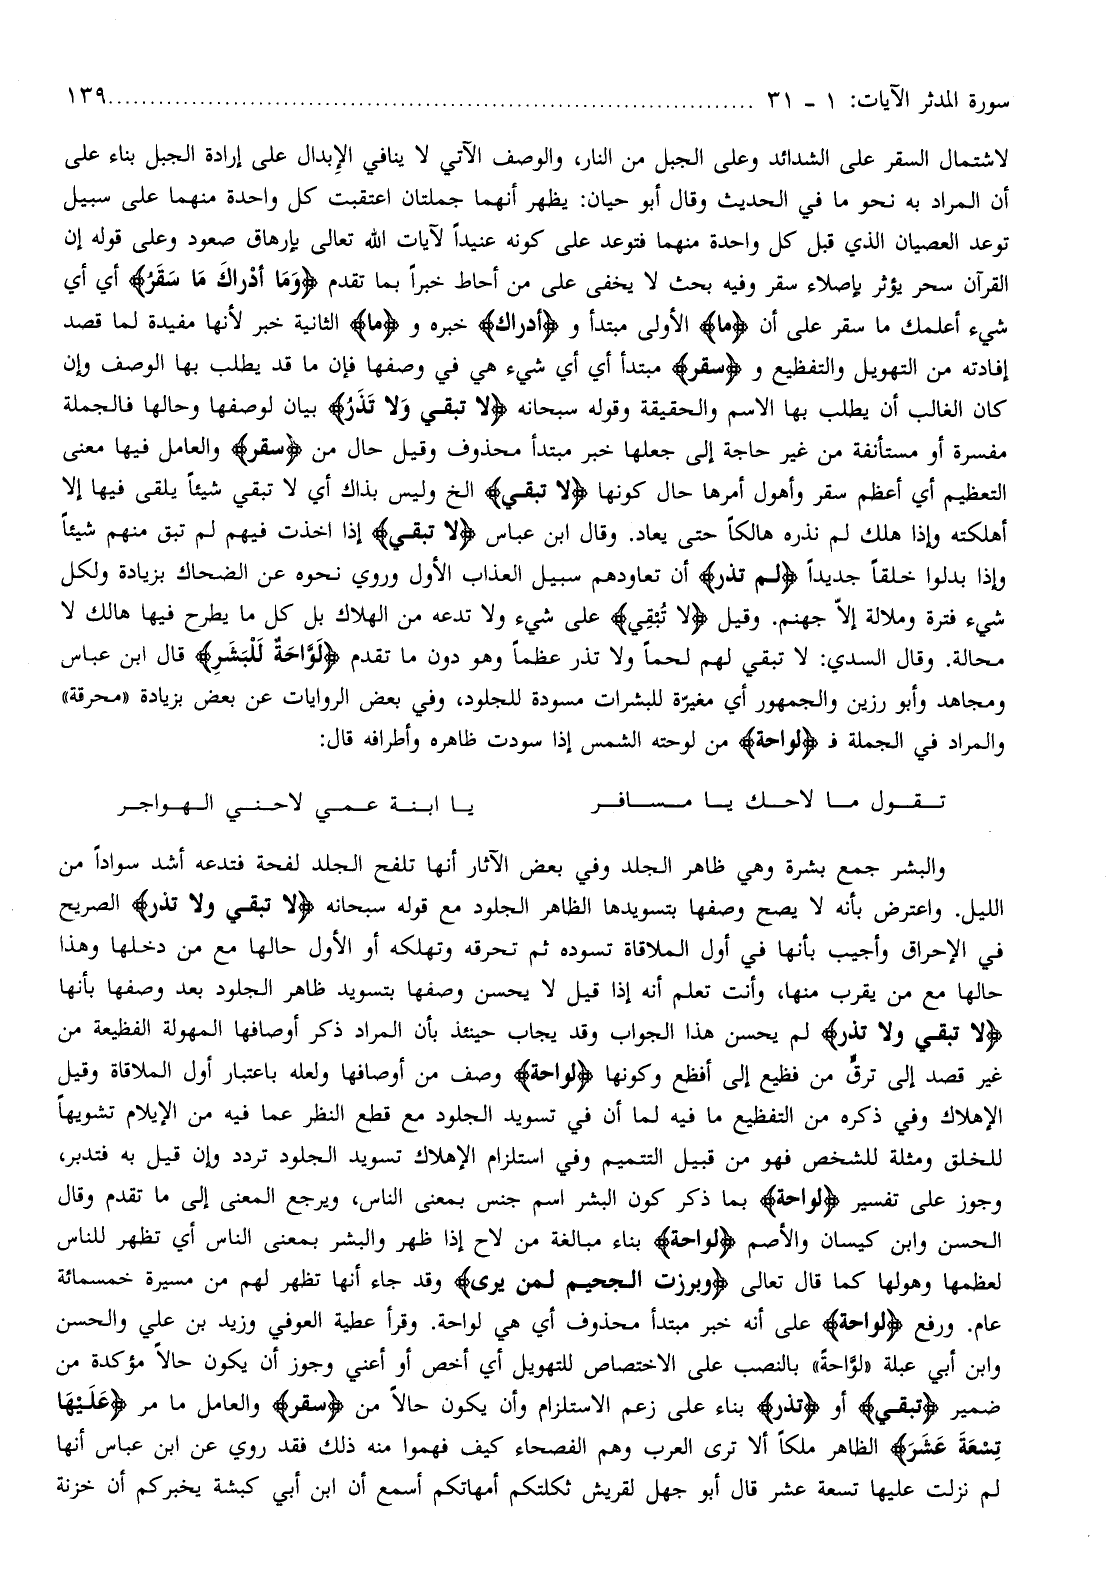 سورة المدثر الآيات: ١ - ٣١ ........................................................................ ١٣٩
لاشتمال السقر على الشدائد وعلى الجبل من النار، والوصف الآتي لا ينافي الإِبدال على إرادة الجبل بناء على
أن المراد به نحو ما في الحديث وقال أبو حيان: يظهر أنهما جملتان اعتقبت كل واحدة منهما على سبيل
توعد العصيان الذي قبل كل واحدة منهما فتوعد على كونه عنيداً لآيات الله تعالى بإرهاق صعود وعلى قوله إن
القرآن سحر يؤثر بإصلاء سقر وفيه بحث لا يخفى على من أحاط خبراً بما تقدم ﴿وَمَا أدْراكَ مَا سَقَرُ﴾ أي أي
شيء أعلمك ما سقر على أن ﴿ما﴾ الأولى مبتدأ و ﴿أدراك﴾ خبره و ﴿ما﴾ الثانية خبر لأنها مفيدة لما قصد
إفادته من التهويل والتفظيع و ﴿سقر﴾ مبتدأ أي أي شيء هي في وصفها فإن ما قد يطلب بها الوصف وإن
كان الغالب أن يطلب بها الاسم والحقيقة وقوله سبحانه ﴿لا تبقي وَلا تَذَرُ﴾ بيان لوصفها وحالها فالجملة
مفسرة أو مستأنفة من غير حاجة إلى جعلها خبر مبتدأ محذوف وقيل حال من ﴿سقر﴾ والعامل فيها معنى
التعظيم أي أعظم سقر وأهول أمرها حال كونها ﴿لا تبقي﴾ الخ وليس بذاك أي لا تبقي شيئاً يلقى فيها إلا
أهلكته وإذا هلك لم نذره هالكاً حتى يعاد. وقال ابن عباس ﴿لا تبقي﴾ إذا اخذت فيهم لم تبق منهم شيئاً
وإذا بدلوا خلقاً جديداً ﴿لم تذر﴾ أن تعاودهم سبيل العذاب الأول وروي نحوه عن الضحاك بزيادة ولكل
شيء فترة وملالة إلاّ جهنم. وقيل ﴿لا تُبْقِي﴾ على شيء ولا تدعه من الهلاك بل كل ما يطرح فيها هالك لا
محالة. وقال السدي: لا تبقي لهم لحماً ولا تذر عظماً وهو دون ما تقدم ﴿لَوَّاحَةٌ لَلْبَشَرِ﴾ قال ابن عباس
ومجاهد وأبو رزين والجمهور أي مغيرّة للبشرات مسودة للجلود، وفي بعض الروايات عن بعض بزيادة «محرقة»
والمراد في الجملة فـ ﴿لواحة﴾ من لوحته الشمس إذا سودت ظاهره وأطرافه قال:
تـقـول مـا لاحـك يـا مـسـافـر يـا ابـنـة عـمـي لاحـنـي الـهـواجـر
والبشر جمع بشرة وهي ظاهر الجلد وفي بعض الآثار أنها تلفح الجلد لفحة فتدعه أشد سواداً من
الليل. واعترض بأنه لا يصح وصفها بتسويدها الظاهر الجلود مع قوله سبحانه ﴿لا تبقي ولا تذر﴾ الصريح
في الإحراق وأجيب بأنها في أول الملاقاة تسوده ثم تحرقه وتهلكه أو الأول حالها مع من دخلها وهذا
حالها مع من يقرب منها، وأنت تعلم أنه إذا قيل لا يحسن وصفها بتسويد ظاهر الجلود بعد وصفها بأنها
﴿لا تبقي ولا تذر﴾ لم يحسن هذا الجواب وقد يجاب حينئذ بأن المراد ذكر أوصافها المهولة الفظيعة من
غير قصد إلى ترقٍّ من فظيع إلى أفظع وكونها ﴿لواحة﴾ وصف من أوصافها ولعله باعتبار أول الملاقاة وقيل
الإهلاك وفي ذكره من التفظيع ما فيه لما أن في تسويد الجلود مع قطع النظر عما فيه من الإيلام تشويهاً
للخلق ومثلة للشخص فهو من قبيل التتميم وفي استلزام الإهلاك تسويد الجلود تردد وإن قيل به فتدبر،
وجوز على تفسير ﴿لواحة﴾ بما ذكر كون البشر اسم جنس بمعنى الناس، ويرجع المعنى إلى ما تقدم وقال
الحسن وابن كيسان والأصم ﴿لواحة﴾ بناء مبالغة من لاح إذا ظهر والبشر بمعنى الناس أي تظهر للناس
لعظمها وهولها كما قال تعالى ﴿وبرزت الجحيم لمن يرى﴾ وقد جاء أنها تظهر لهم من مسيرة خمسمائة
عام. ورفع ﴿لواحة﴾ على أنه خبر مبتدأ محذوف أي هي لواحة. وقرأ عطية العوفي وزيد بن علي والحسن
وابن أبي عبلة «لوَّاحةً» بالنصب على الاختصاص للتهويل أي أخص أو أعني وجوز أن يكون حالاً مؤكدة من
ضمير ﴿تبقي﴾ أو ﴿تذر﴾ بناء على زعم الاستلزام وأن يكون حالاً من ﴿سقر﴾ والعامل ما مر ﴿عَلَيْهَا
تِسْعَةَ عَشَرَ﴾ الظاهر ملكاً ألا ترى العرب وهم الفصحاء كيف فهموا منه ذلك فقد روي عن ابن عباس أنها
لم نزلت عليها تسعة عشر قال أبو جهل لقريش ثكلتكم أمهاتكم أسمع أن ابن أبي كبشة يخبركم أن خزنة